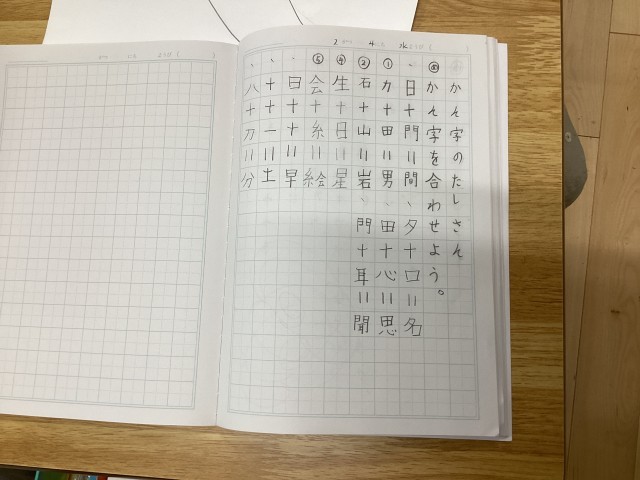 2 4 水
かん字のたしさん
かん字を合わせよう。
、日+門=間、夕+口=名
①力+田=男、田+心=思
②石+山=岩、門+耳=聞
④生+日=星
⑤会+糸=絵
、日+十=早
、十+一=土
、八+刀=分